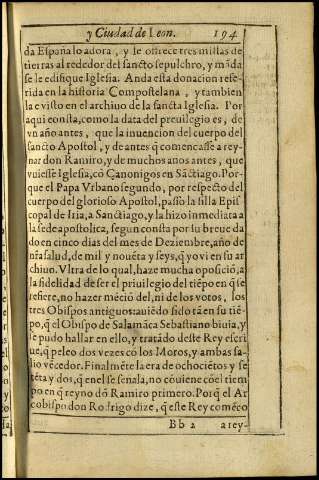 y Ciudad de Leon. 194
da España lo adora, y le offrece tres millas de
tierras al rededor del sancto sepulchro, y mãda
se le edifique Iglesia. Anda esta donacion refe-
rida en la historia Compostelana, y tambien
la e visto en el archiuo de la sancta Iglesia. Por
aqui consta, como la data del preuilegio es, de
vn año antes, que la inuencion del cuerpo del
sancto Apostol, y de antes q̃ comencasse a rey-
nar don Ramiro, y de muchos anos antes, que
vuiesse Iglesia, cõ Canonigos en Sãctiago. Por-
que el Papa Vrbano segundo, por respecto del
cuerpo del glorioso Apostol, passo la silla Epis
copal de Iria, a Sanctiago, y la hizo inmediata a
la sede apostolica, segun consta por su breue da
do en cinco dias del mes de Deziembre, año de
nr̃a salud, de mil y nouẽta y seys, q̃ yo vi en su ar
chiuo. Vltra de lo qual, haze mucha oposiciõ, a
la fidelidad de ser el priuilegio del tiẽpo en q̃ se
refiere, no hazer mẽciõ del, ni de los votos, los
tres Obispos antiguos: auiẽdo sido tã en su tiẽ-
po, q̃ el Obispo de Salamãca Sebastiano biuia, y
se pudo hallar en ello, y tratãdo deste Rey escri
ue, q̃ peleo dos vezes cõ los Moros, y ambas sa-
lio vẽcedor. Finalmẽte la era de ochociẽtos y se
tẽta y dos, q̃ en el se señala, no cõuiene cõ el tiem
po en q̃ reyno dõ Ramiro primero. Porq̃ el Ar
cobispo don Rodrigo dize, q̃ este Rey comẽco
Bb 2 a rey-